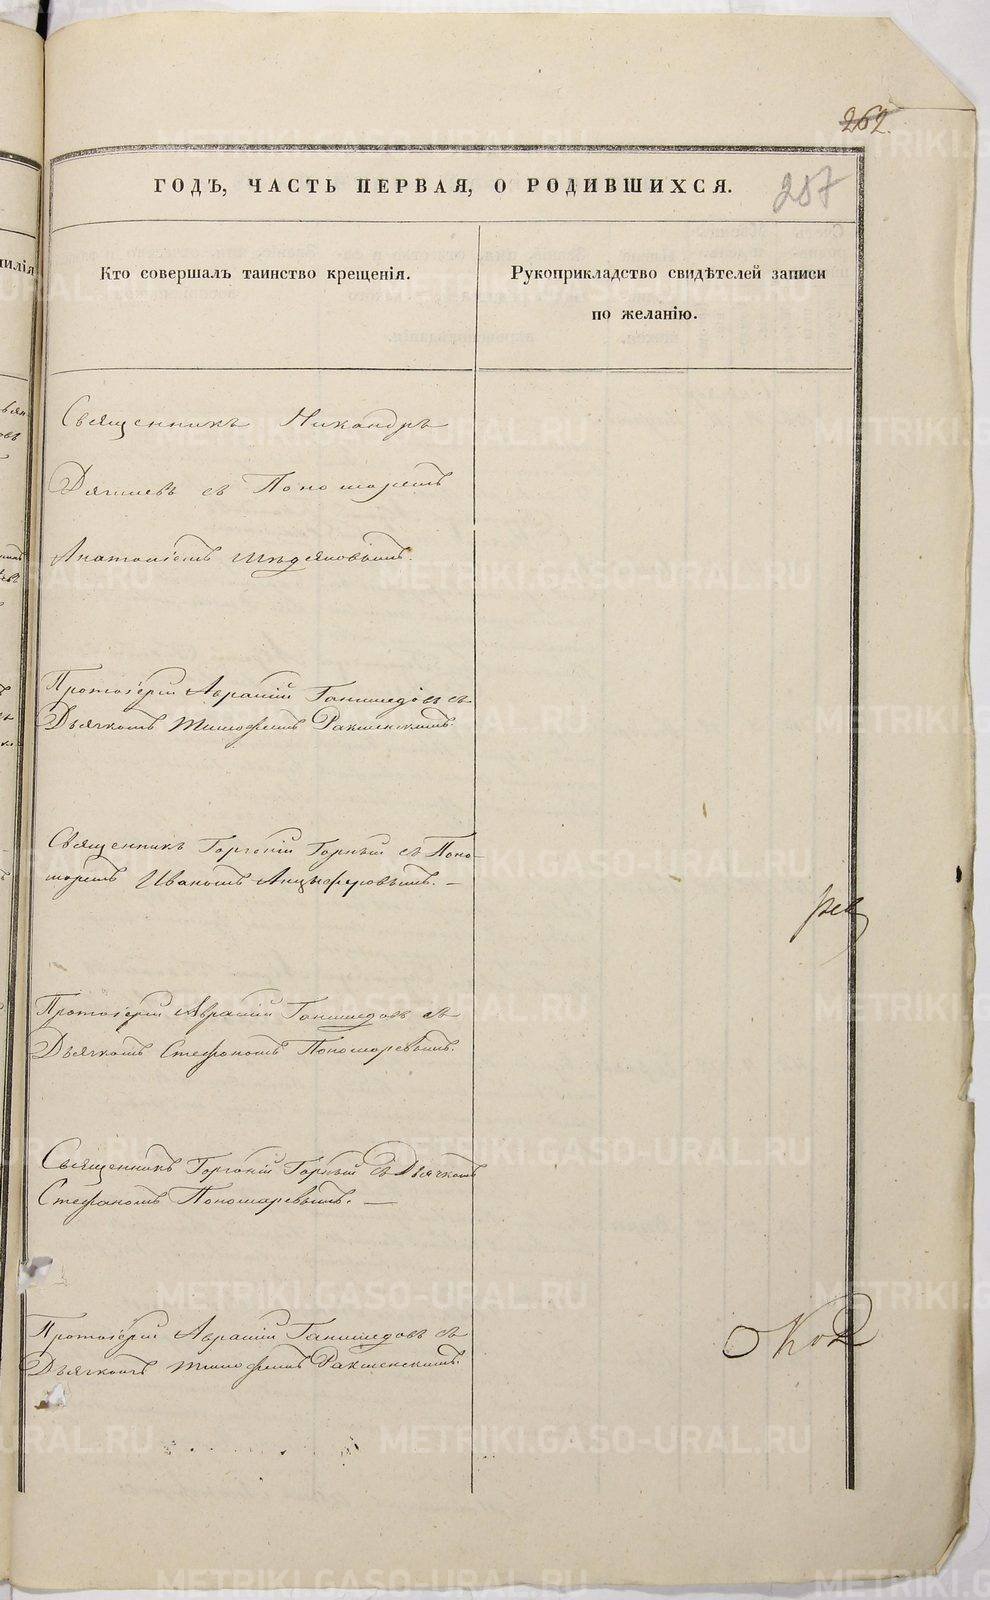 262.
ГОДЪ, ЧАСТЬ ПЕРВАЯ, О РОДИВШИХСЯ.
287
Кто совершалъ таинство крещенія.
Рукоприкладство свидѣтелей записи
по желанію.
Священникъ Никандръ
съ Пономаремъ
Анатоліемъ
Протоіерей Авраамій съ
Дьячкомъ Тимофеемъ
Священникъ Горгоній Горный съ Поно-
маремъ Иваномъ Анцыферовымъ. —
Протоіерей Авраамій съ
Дьячкомъ Стефаномъ Пономаревымъ.
Священникъ Горгоній Горный съ Дьячкомъ
Стефаномъ Пономаревымъ. —
Протоіерей Авраамій съ
Дьячкомъ Тимофеемъ
METRIKI.GASO-URAL.RU